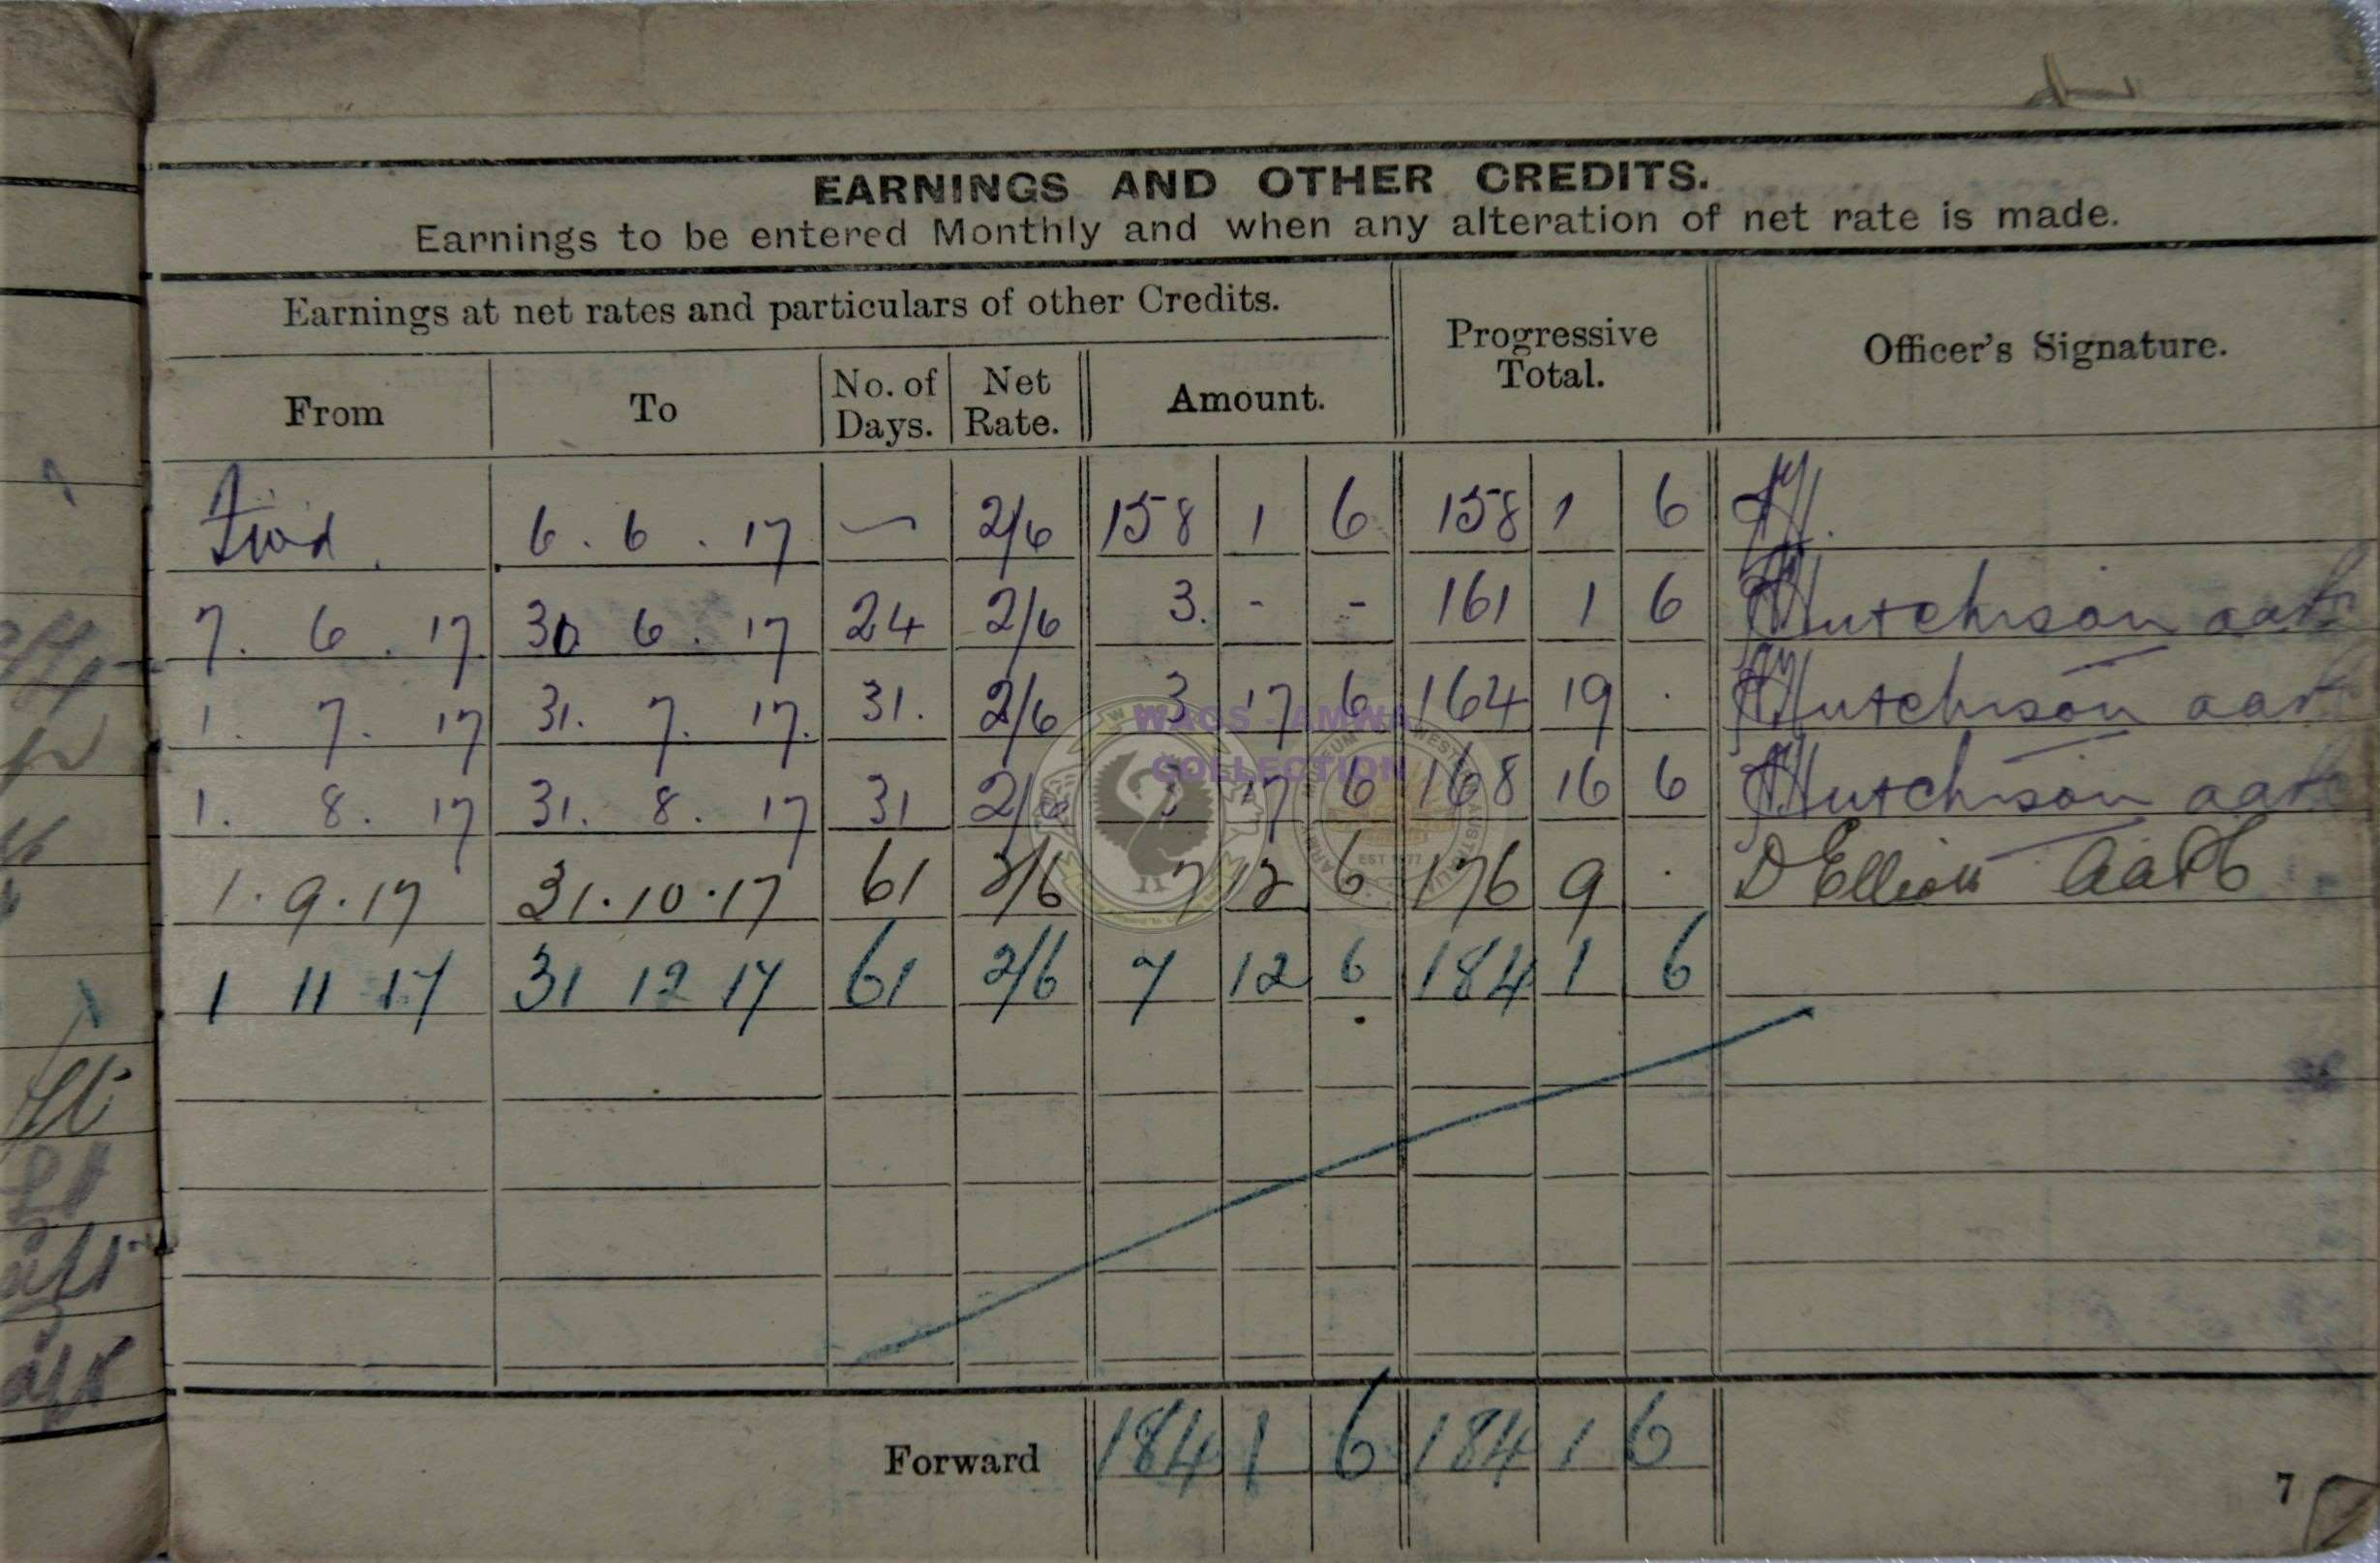 EARNINGS AND OTHER CREDITS.
Earnings to be entered Monthly and when any alteration of net rate is made.
Earnings at net rates and particulars of other Credits.
Progressive Total.
Officer's Signature.
From To No. of Days. Net Rate. Amount.
Fwd. 6.6.17 — 2/6 158 1 6 158 1 6
7.6.17 30 6.17 24 2/6 3. - - 161 1 6 Hutchison
1.7.17 31.7.17. 31. 2/6 3 17 6 164 19 . Hutchison
1.8.17 31.8.17 31 2/6 3 17 6 168 16 6 Hutchison
1.9.17 31.10.17 61 2/6 7 12 6 176 9 . D Elliott
1 11 17 31 12 17 61 2/6 7 12 6 184 1 6
Forward 184 1 6 184 1 6
7
WACS - AMWA
COLLECTION
EST 1977